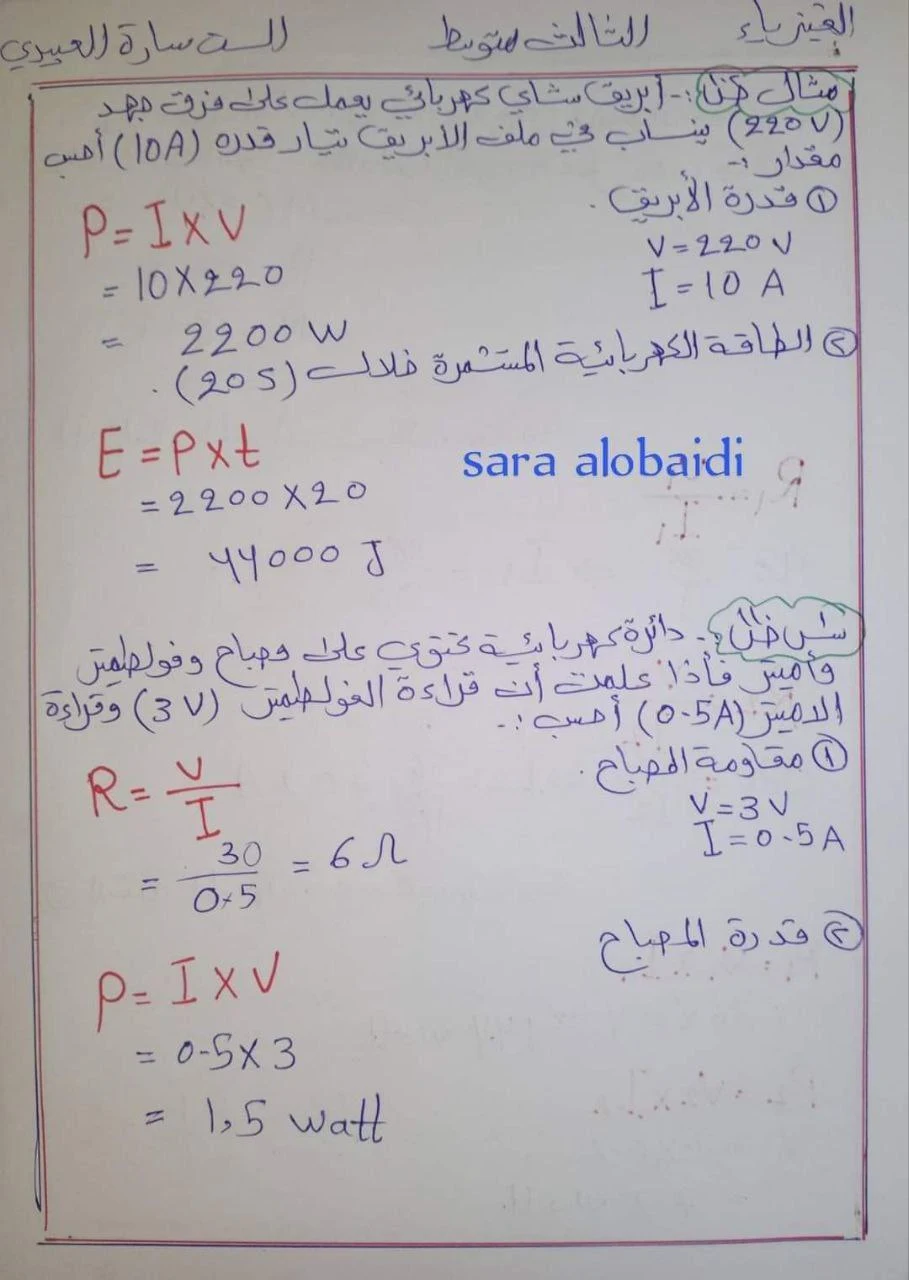 الفيزياء الثالث متوسط الست سارة العبيدي
مثال :- أبريق شاي كهربائي يعمل على فرق جهد
(220V) ينساب في ملف الأبريق تيار قدره (10A) أحسب
مقدار :-
① قدرة الأبريق .
V=220V
I=10 A
P=I×V
=10×220
= 2200W
② الطاقة الكهربائية المستثمرة خلال (20S) .
E=P×t
=2200×20
= 44000 J
sara alobaidi
:- دائرة كهربائية تحتوي على مصباح وفولطميتر
وأميتر فأذا علمت أن قراءة الفولطميتر (3V) وقراءة
الاميتر (0.5A) أحسب :-
① مقاومة المصباح .
V=3V
I=0.5A
R= V/I
= 30/0.5 = 6Ω
② قدرة المصباح
P=I×V
=0.5×3
= 1,5 watt